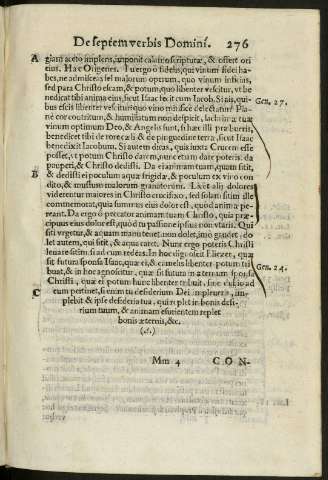 De septem verbis Domini. 276
A giam aceto implens, imponit calamo scripturæ, & offert ori
eius. Hæc Origenes. Tu ergo ô fidelis, qui vinum fidei ha-
bes, ne admisceas fel malorum operum, quo vinum inficias,
sed para Christo escam, & potum, quo libenter vescitur, vt be
nedicat tibi anima eius, sicut Isaac fecit cum Iacob. Si ais, qui-
bus escis libenter vescitur quo vino mirificè delectatur? Pla
nè cor contritum, & humiliatum non despicit, lachrimæ tuæ
vinum optimum Deo, & Angelis sunt, si hæc illi præbueris,
benedicet tibi de rore cæli & de pinguedine terræ, sicut Isaac
benedixit Iacobum. Si autem dicas, quis iuxta Crucem esse
posset, vt potum Christo darem, nunc etiam dare poteris da
pauperi, & Christo dedisti. Da etiam animam tuam, sitit,
B & dedisti ei poculum aquæ frigidæ, & poculum ex vino con
dito, & mustum malorum granatorum. Licet alij dolores
viderentur maiores in Christo crucifixo, sed solam sitim ille
commemorat, quia summus eius dolor est, quòd anima pe-
reant. Da ergo ô peccator animam tuam Christo, quia præ-
cipuus eius dolor est, quòd tu passione ipsius non vtaris. Qui
siti vrgetur, & aquam non inuenit, maximè dolet, imò gaudet, do
let autem, qui sitit, & aqua caret. Nunc ergo poteris Christi
lenire sitim, si ad eum redeas. In hoc dignoscit Eliezer, quæ
sit futura sponsa Isaac, quæ ei, & camelis libenter potum tri
buat, & in hoc agnoscitur, quæ sit futura in æternum sponsa
Christi, quæ ei potum hunc libenter tribuit, sine dubio ad
C eum pertinet, si enim tu desiderium Dei impleueris, im-
plebit & ipse desideria tua, qui replet in bonis desi-
rium tuum, & animam esurientem replet
bonis æternis, &c.
(.&.)
Gen. 27.
Gen. 24.
Mm 4 CON-